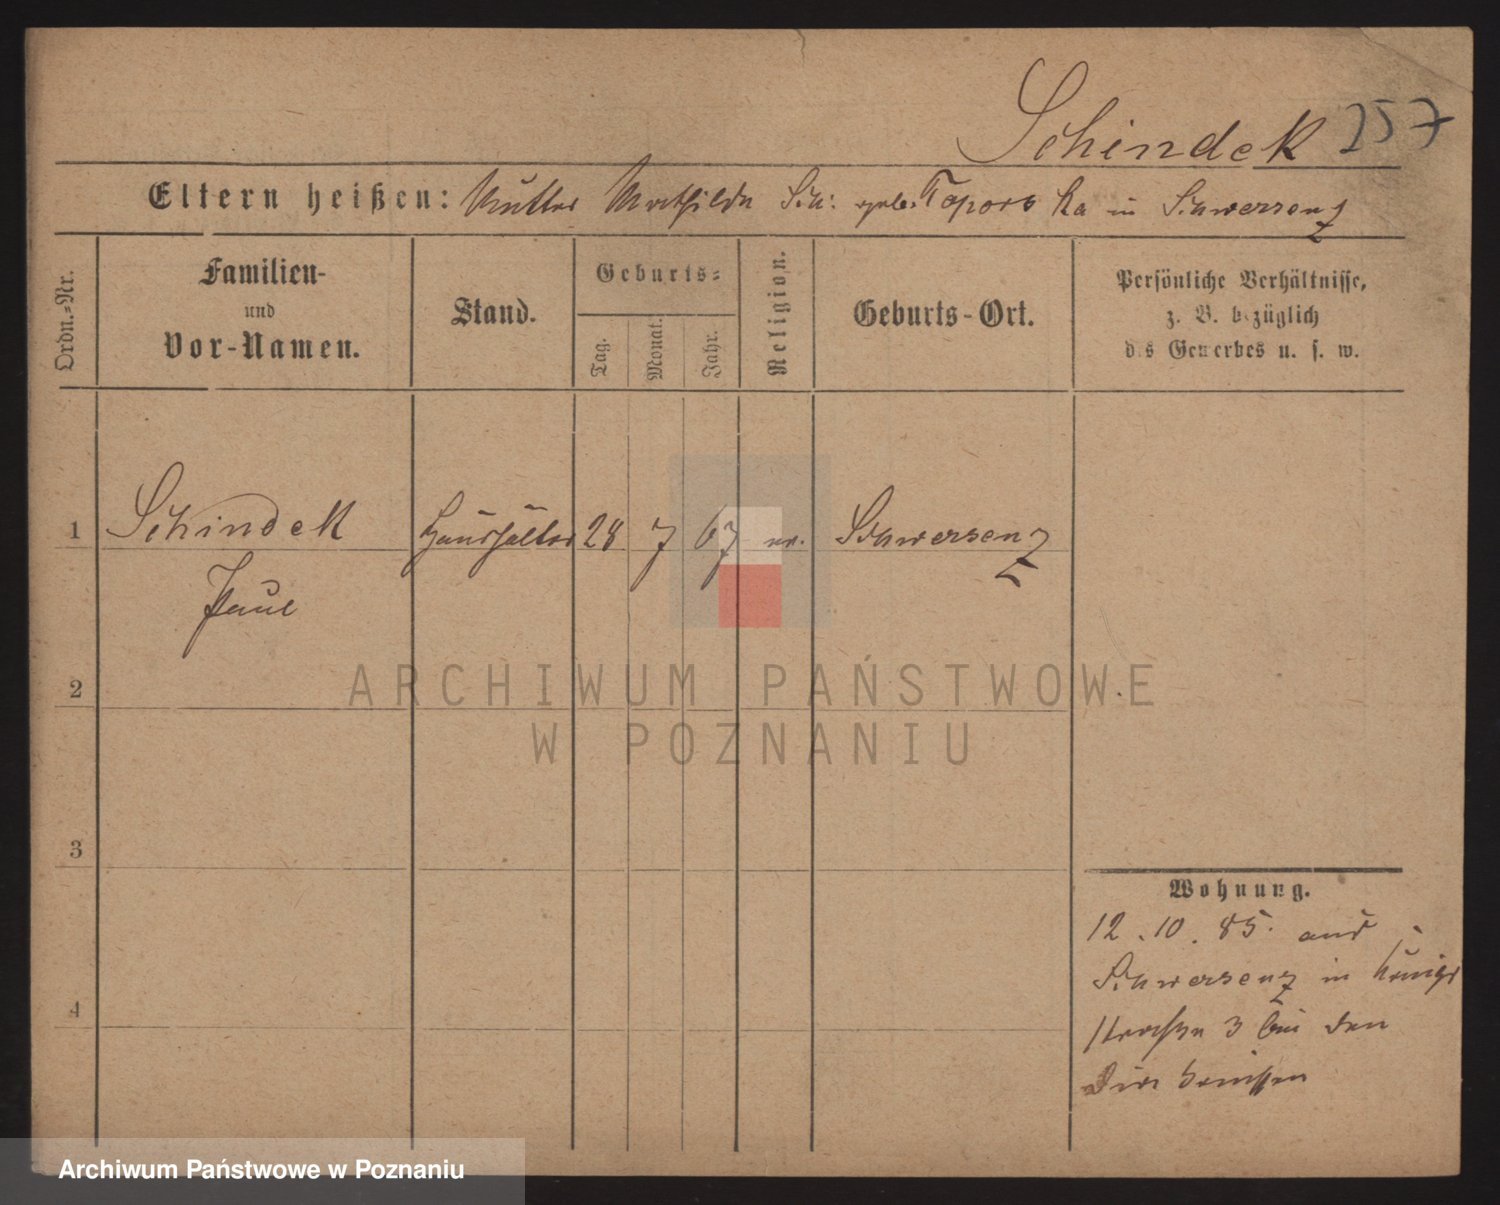 Schindek 257
Eltern heißen: Mutter Mathilde Sch: geb. Toporska in Schwersenz
Ordn.-Nr.
Familien-
und
Vor-Namen.
Stand.
Geburts-
Tag.
Monat.
Jahr.
Religion.
Geburts-Ort.
Persönliche Verhältnisse,
z. B. bezüglich
des Gewerbes u. s. w.
1 Schindek Haushälter 28 7 67 ev. Schwersenz
Paul
2
ARCHIWUM PAŃSTWOWE
W POZNANIU
3
Wohnung.
12.10.85. aus
Schwersenz in Königs
straße 3 bei den
4
Archiwum Państwowe w Poznaniu